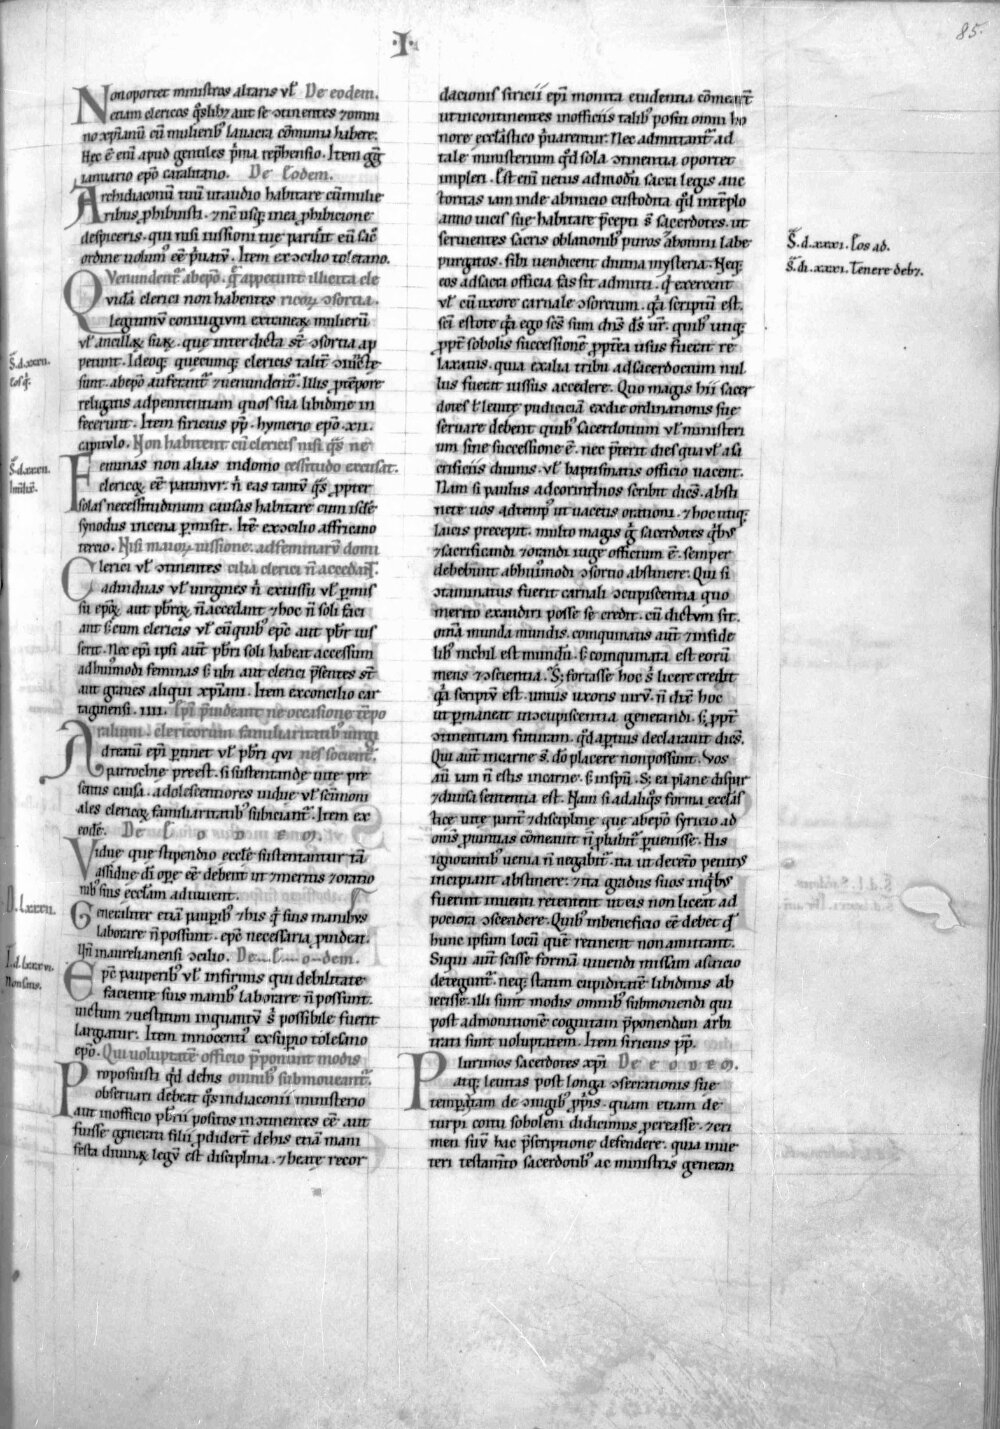 ·I·
85.
Non oportet ministros altaris vl̄ De eodem.
etiam clericos q̄slibꝫ aut se ɔtinentes ⁊ omni
no xp̄ianū cū mulieribꝰ lauacra cōmunia habere.
Hec ē eni apud gentiles p̄ma rep̄hensio. Item gḡ
ianuario ep̄o caralitano. De Eodem.
Archidiaconū tuū ut audio habitare cū mulie
ribus ꝓhibuisti. ⁊ nc̄ usqꝫ in ea ꝓhibicione
despiceris. qui nisi iussioni tue paruit eū sac̄
ordine uolumꝰ eē p̄uatū. Item ex ɔcilio toletano.
Qvenundent̄ ab ep̄o. q̄ appetunt illicita cle
vidā clerici non habentes ricoꝝ ɔsortia.
legitimū coniugium extraneaꝝ mulierū
vl̄ ancillaꝝ suaꝝ. que interdicta st̄ ɔsortia ap
petunt. Ideoqꝫ quecumqꝫ clericis talit̄
sunt. ab ep̄o auferant̄ ⁊ uenundent̄. illis ꝓ tēpore
religatis ad penitentiam quos sua libidine in
fecerunt. Item siricius pp̄. hymerio ep̄o. xii.
capitulo. Non habitent cū clericis nisi q̄s ne
Feminas non alias in domo cessitudo excusat.
clericoꝝ eē patimur. n̄ eas tantū q̄s ꝓpter
solas necessitudinum causas habitare cum isdē
synodus nicena ꝑmisit. Itē ex ɔcilio affricano
tertio. Nisi maioꝝ iussione. ad feminarū domi
Clerici vl̄ ɔtinentes cilia clerici n̄ accedāt.
ad uiduas vl̄ uirgines n̄ ex iussu vl̄ ꝑmis
su ep̄oꝝ aut pb̄roꝝ n̄ accedant ⁊ hoc n̄ soli faci
ant s; cum clericis vl̄ cū quibꝰ ep̄c aut pb̄r ius
serit. Nec ep̄i ipsi aut pb̄ri soli habeāt accessum
ad huiꝰmodi feminas s; ubi aut clerici p̄sentes st̄
aut graues aliqui xp̄iani. Item ex concilio car
taginensi .iiii. Ep̄i p̄uideant ne occasione tēpo
ralium. clericorum familiaritatibꝰ uirgi
Ad reatū ep̄i ꝑtinet vl̄ pb̄ri qui nes socient̄.
parrochie preest. si sustentande uite pre
sentis causa. adolescentiores uidue vl̄ scīmoni
ales clericoꝝ familiaritatibꝰ subiciant̄. Item ex
eodē. De E o d e m.
Vidue que stipendio ecclē sustentantur tā
assidue di ope eē debent ut ⁊ meritis ⁊ oratio
nibꝰ suis ecclam adiuuent.
Generaliter etiā pauꝑibꝰ ⁊ his q̄ suis manibꝰ
laborare n̄ possunt. ep̄c necessaria ꝓuideat.
in aurelianensi ɔcilio. De.....E...o-dem.
Ep̄c pauperibꝰ vl̄ infirmis qui debilitate
faciente suis manibꝰ laborare n̄ possunt.
uictum ⁊ uestitum inquantū possibile fuerit
largiatur. Item innocentiꝰ exsuꝑio tolosano
ep̄o. Qui uoluptatē officio p̄ponunt modis
Proposuisti q̄d dehis omnibꝰ submoueant̄.
obseruari debeat q̄s in diaconii ministerio
aut in officio pb̄rii positos in ɔtinentes eē. aut
fuisse generati filii ꝓdidert̄ dehis etiā mani
festa diuinaꝝ legū est disciplina. ⁊ beate recor
dacionis siricii ep̄i monita euidentia cōmeart̄
ut incontinentes in officiis talibꝰ positi omni ho
nore ecclāstico p̄uarentur. Nec admittant̄ ad
tale ministerium q̄d sola ɔtinentia oportet
impleri. Est eni uetus admodū sacra legis auc
toritas iam inde ab inicio custodita q̄d in tēplo
anno uicis sue habitare p̄cepti s̄ sacerdotes. ut
seruientes sacris oblationibꝰ puros ab omni labe
purgatos. sibi uendicent diuina mysteria. Neqꝫ
eos ad sacra officia fas sit admitti. q̄ exercent
vl̄ cū uxore carnale ɔsortium. q̄a scriptū est.
sc̄i estote q̄a ego sc̄s sum dn̄s ds̄ ur̄. quibꝰ utiqꝫ
ꝓpt̄ sobolis successionē ꝓpt̄ea usus fuerat re
laxatus. quia ex alia tribu ad sacerdotium nul
lus fuerat iussus accedere. Quo magis hii sacer
dotes t̄ leuite pudicitiā ex die ordinationis sue
seruare debent quibꝰ sacerdotium vl̄ ministeri
um sine successione ē. nec p̄terit dies qua vl̄ a sa
crificiis diuinis. vl̄ baptismatis officio uacent.
Nam si paulus ad corinthios scribit dicēs. absti
nete uos ad tempꝰ ut uacetis orationi. ⁊ hoc utiqꝫ
laicis precepit. multo magis q̄ sacerdotes q̄bꝰ
⁊ sacrificandi ⁊ orandi iuge officium ē. semper
debebunt ab huiꝰmodi ɔsortio abstinere. Qui si
ɔtaminatus fuerit carnali ɔcupiscentia quo
merito exaudiri posse se credit. cū dictum sit.
oīna munda mundis. coinquinatis aut̄ ⁊ infide
libꝰ nichil est mundū. s; coinquinata est eorū
mens ⁊ ɔscientia. S; fortasse hoc licere credit
q̄a scriptū est. unius uxoris uirū. n̄ dixit hoc
ut ꝑmaneat in ɔcupiscentia generandi. s; ꝓpt̄
ɔtinentiam futuram. q̄d apertius declarauit dicēs.
Qui aut̄ in carne s̄. do placere non possunt. vos
aū iam n̄ estis in carne. s; in sp̄u. S; ea plane dispar
⁊ diuisa sententia est. Nam si ad aliq̄s forma ecclas
tice uite parit̄ ⁊ discipline que ab ep̄o syricio ad
om̄s ꝓuincias cōmeauit n̄ ꝓbabit̄ ꝑuenisse. His
ignorantibꝰ uenia n̄ negabit̄. ita ut decet̄o penitꝰ
incipiant abstinere. ⁊ ita gradus suos in q̄bꝰ
fuerint inuenti retentent ut eis non liceat ad
pociora ɔscendere. Quibꝰ in beneficio eē debet q̄
hunc ipsum locū quē retinent non amittant.
Siqui aut̄ scisse formā uiuendi missam a siricio
deteguntꝰ. neqꝫ statim cupiditatē libidinis ab
iecisse. illi sunt modis omnibꝰ submouendi qui
post admonitionē cognitam p̄ponendum arbi
trati sunt uoluptatem. Item siricius pp̄.
Plurimos sacerdotes xp̄i De e o d e m.
atqꝫ leuitas post longa ɔsecrationis sue
tempora tam de ɔiugibꝰ ꝓp̄is. quam etiam de
turpi coitu sobolem didicimus ꝓcreasse. ⁊ cri
men suū hac p̄scriptione defendere. quia in ue
teri testam̄to sacerdotibꝰ ac ministris generan
S̄. d. xxxi. Eos ad.
S̄. di. xxxi. Tenere deb;.
S̄. d. xxxii.
eos q̄.
S̄. d. xxxii.
D. lxxxvii.
I. d. lxxxvii.
Non suis.